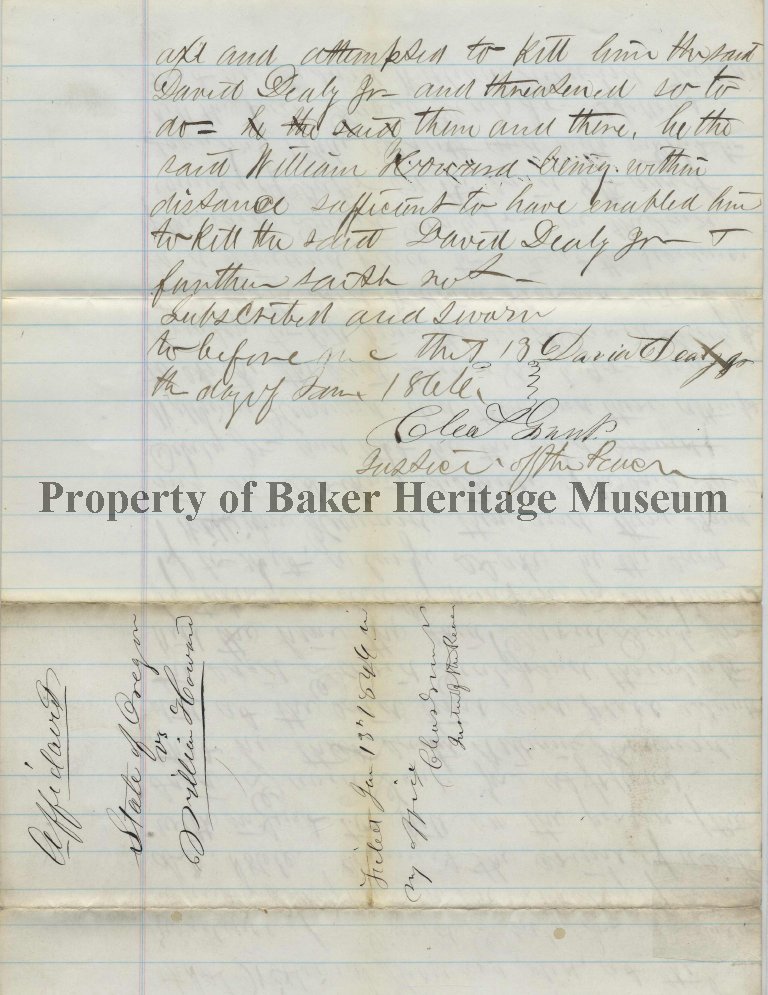 axe and attempted to Kill him the said
David Dealy Jr and threatened so to
do = he the said then and there, he the
said William Howard being within
distance sufficient to have enabled him
to Kill the said David Dealy Jr
further saith not
subscribed and sworn
to before me this 13 David Dealy Jr
th day of Jan 1866.
Chas
Justice of the Peace
Property of Baker Heritage Museum
Affidavit
State of Oregon
vs
William Howard
Filed Jan 13th 1866 in
my office
Chas
Justice of the Peace